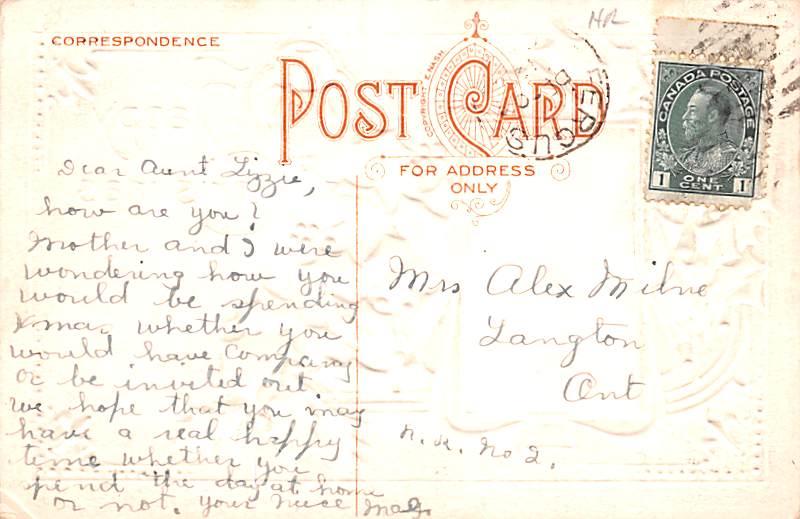 CORRESPONDENCE
HR
POST CARD
COPYRIGHT E. NASH
FERGUS
FOR ADDRESS
ONLY
CANADA POSTAGE
1 ONE CENT 1
Dear Aunt Lizzie,
how are you?
Mother and I were
wondering how you
would be spending
Xmas whether you
would have company
or be invited out
we hope that you may
have a real happy
time whether you
spend the day at home
or not. your niece
Mrs Alex Milne
Langton
Ont
R. R. No 2.